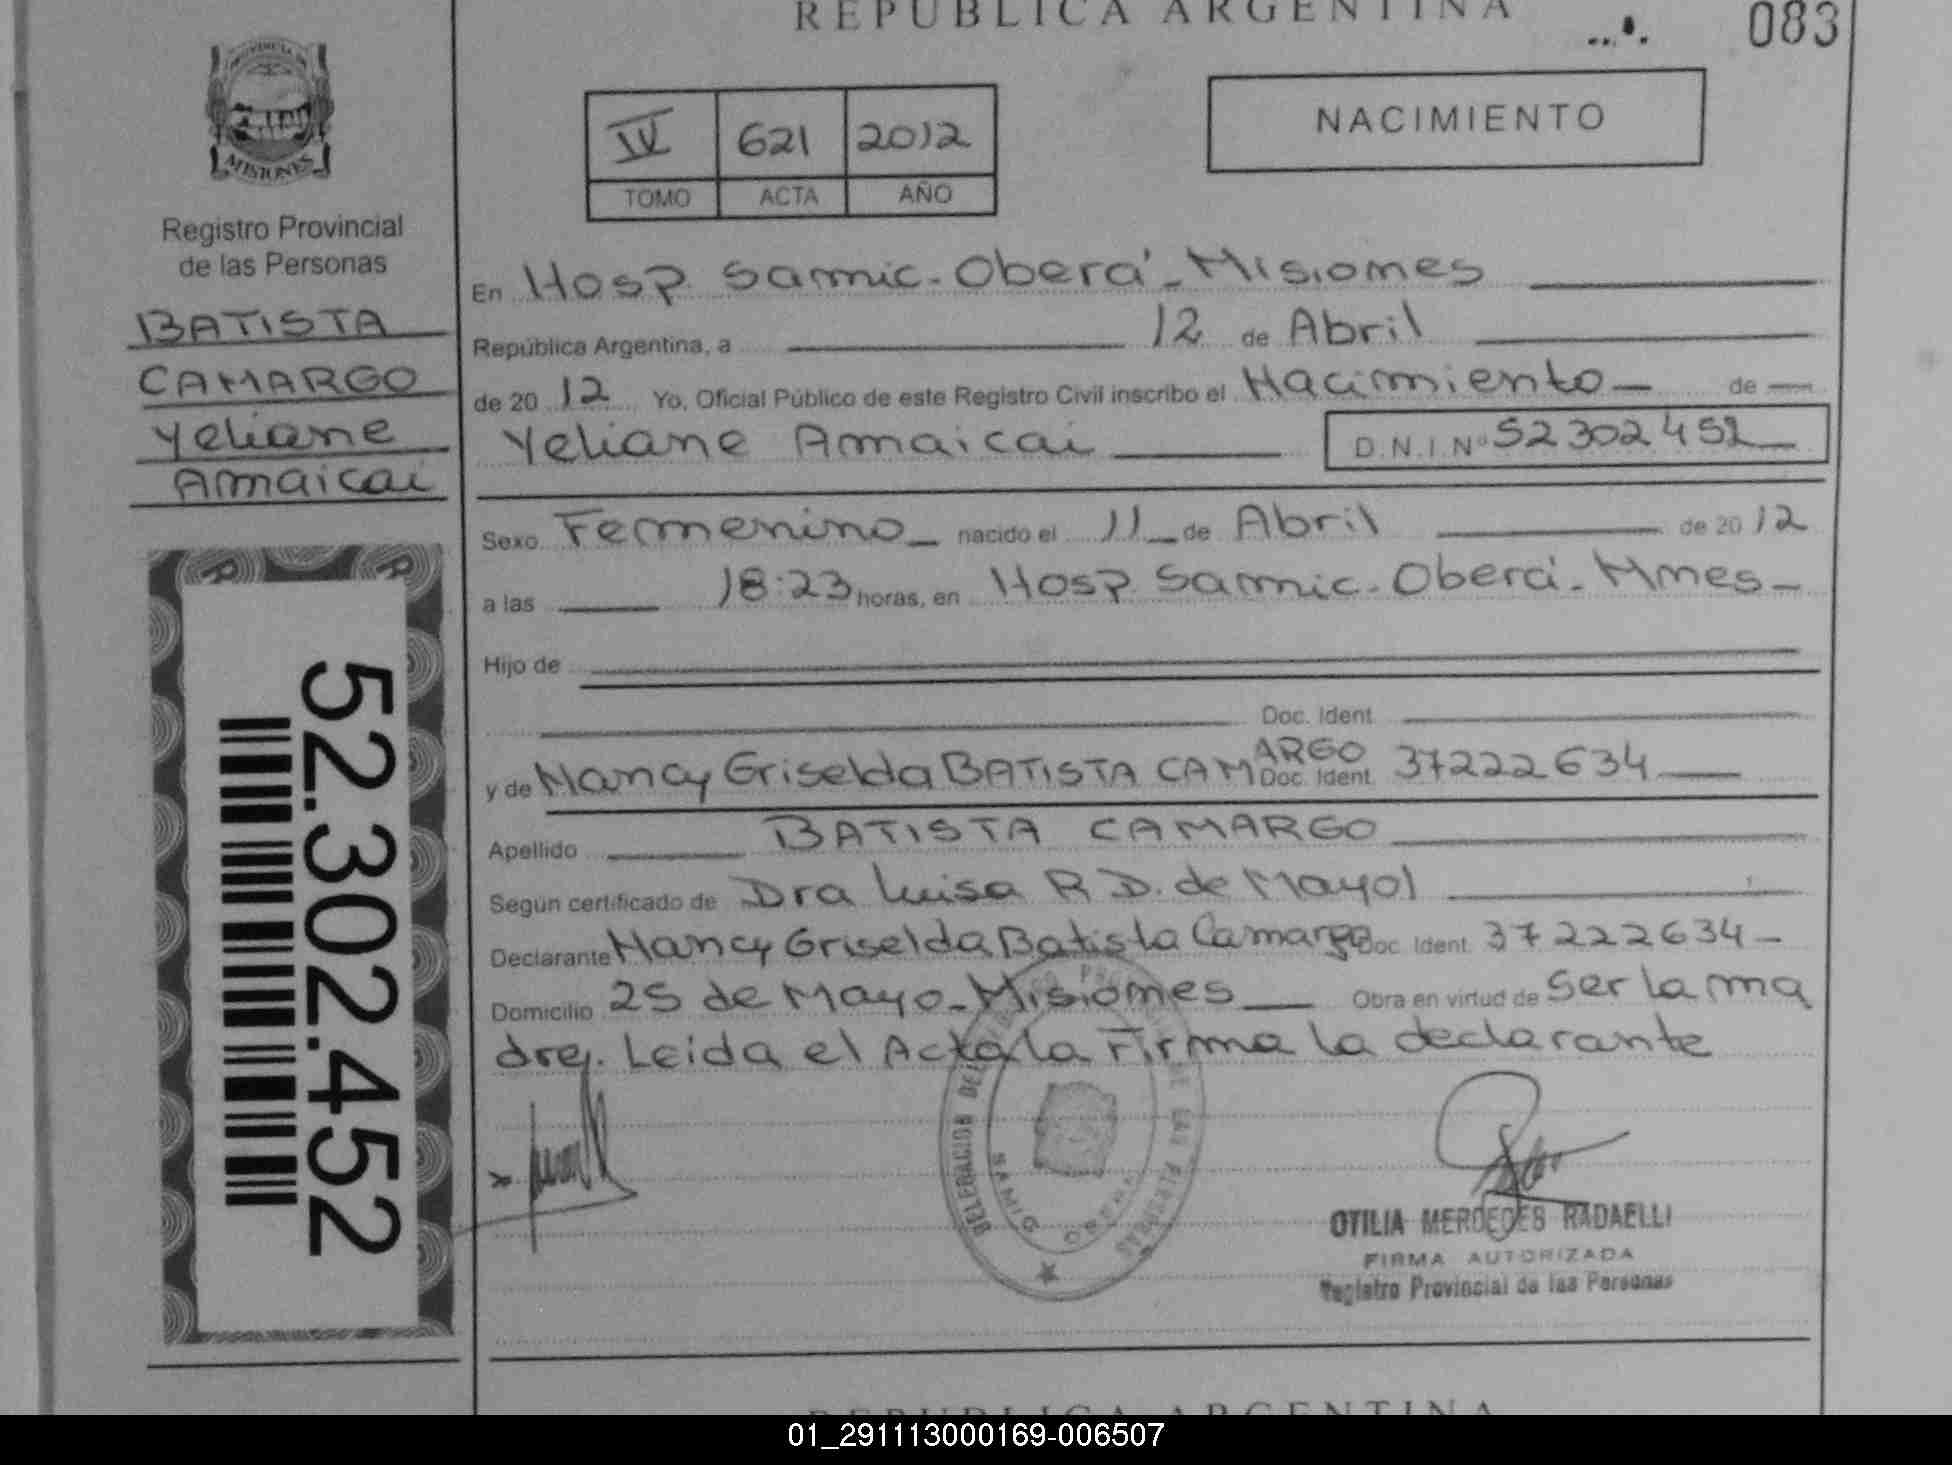 REPUBLICA ARGENTINA
083
PROVINCIA DE
MISIONES
Registro Provincial
de las Personas
BATISTA
CAMARGO
Yeliane
Amaicai
52.302.452
IV 621 2012
TOMO ACTA AÑO
NACIMIENTO
En Hosp. Samic. Oberá - Misiones
República Argentina, a 12 de Abril
de 20 12 Yo, Oficial Público de este Registro Civil inscribo el Nacimiento de
Yeliane Amaicai D.N.I.Nº 52302452
Sexo Femenino nacido el 11 de Abril de 20 12
a las 18:23 horas, en Hosp. Samic. Oberá - Mnes
Hijo de
Doc. Ident.
y de Nancy Griselda BATISTA CAMARGO Doc. Ident. 37222634
Apellido BATISTA CAMARGO
Segun certificado de Dra Luisa R D. de Mayol
Declarante Nancy Griselda Batista Camargo Doc. Ident. 37222634
Domicilio 25 de Mayo - Misiones Obra en virtud de Ser la ma
dre. Leida el Acta la Firma la declarante
SAMIC OBERA
OTILIA MERCEDES RADAELLI
FIRMA AUTORIZADA
Registro Provincial de las Personas
REPUBLICA ARGENTINA
01_291113000169-006507